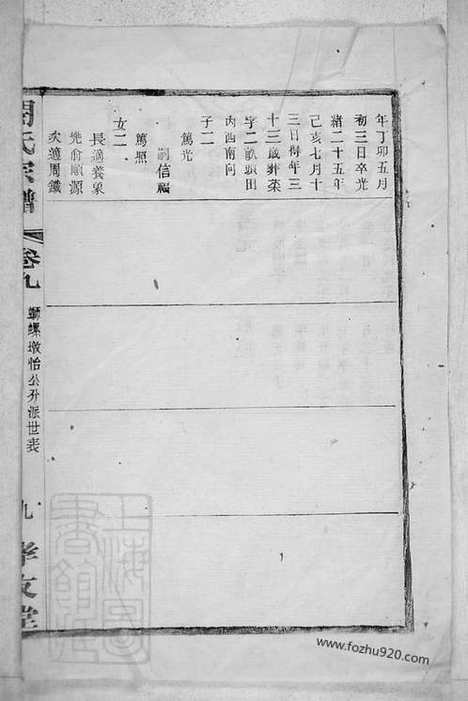 年丁卯五月
初三日卒光
緒二十五年
己亥七月十
三日得年三
十三歲葬菜
字二畝頭田
内酉南向
子二
篤光
嗣信福
篤照
女二
長適黃泉
先俞順源
次適周鐵
周氏宗譜
卷九
螺墩怡公分派世表
九
孝友堂
上海圖書館藏
www.fozhu920.com